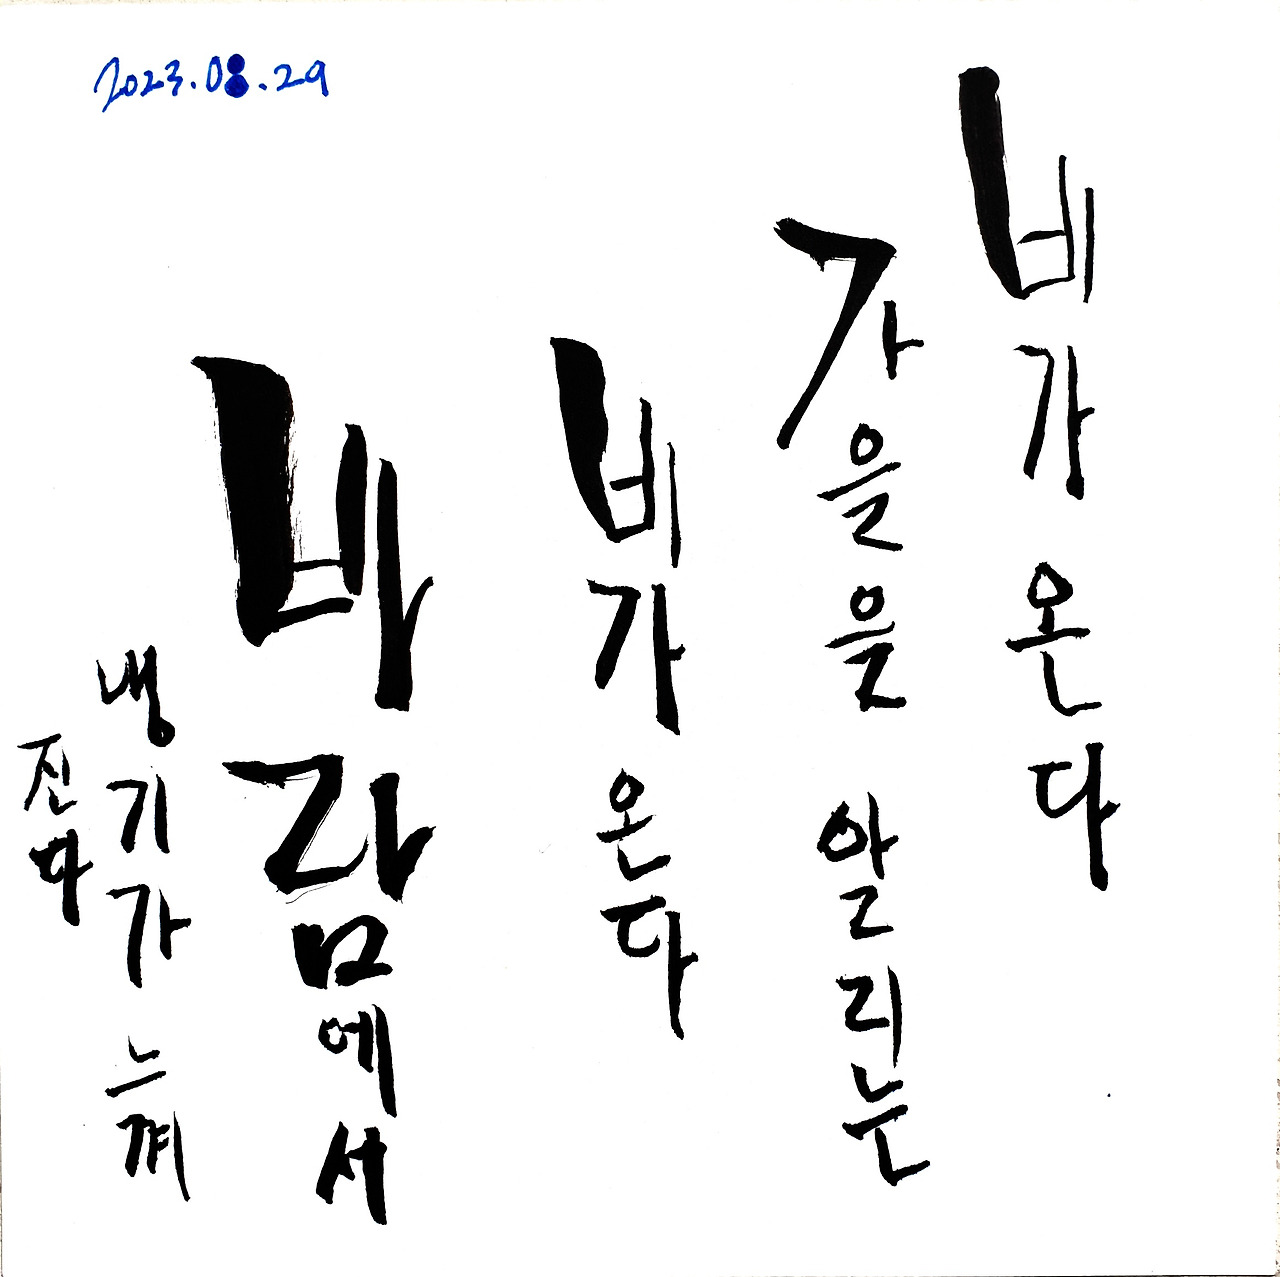 2023.08.29
비가 온다
가을을 알리는
비가 온다
바람에서
냉기가 느껴
진다